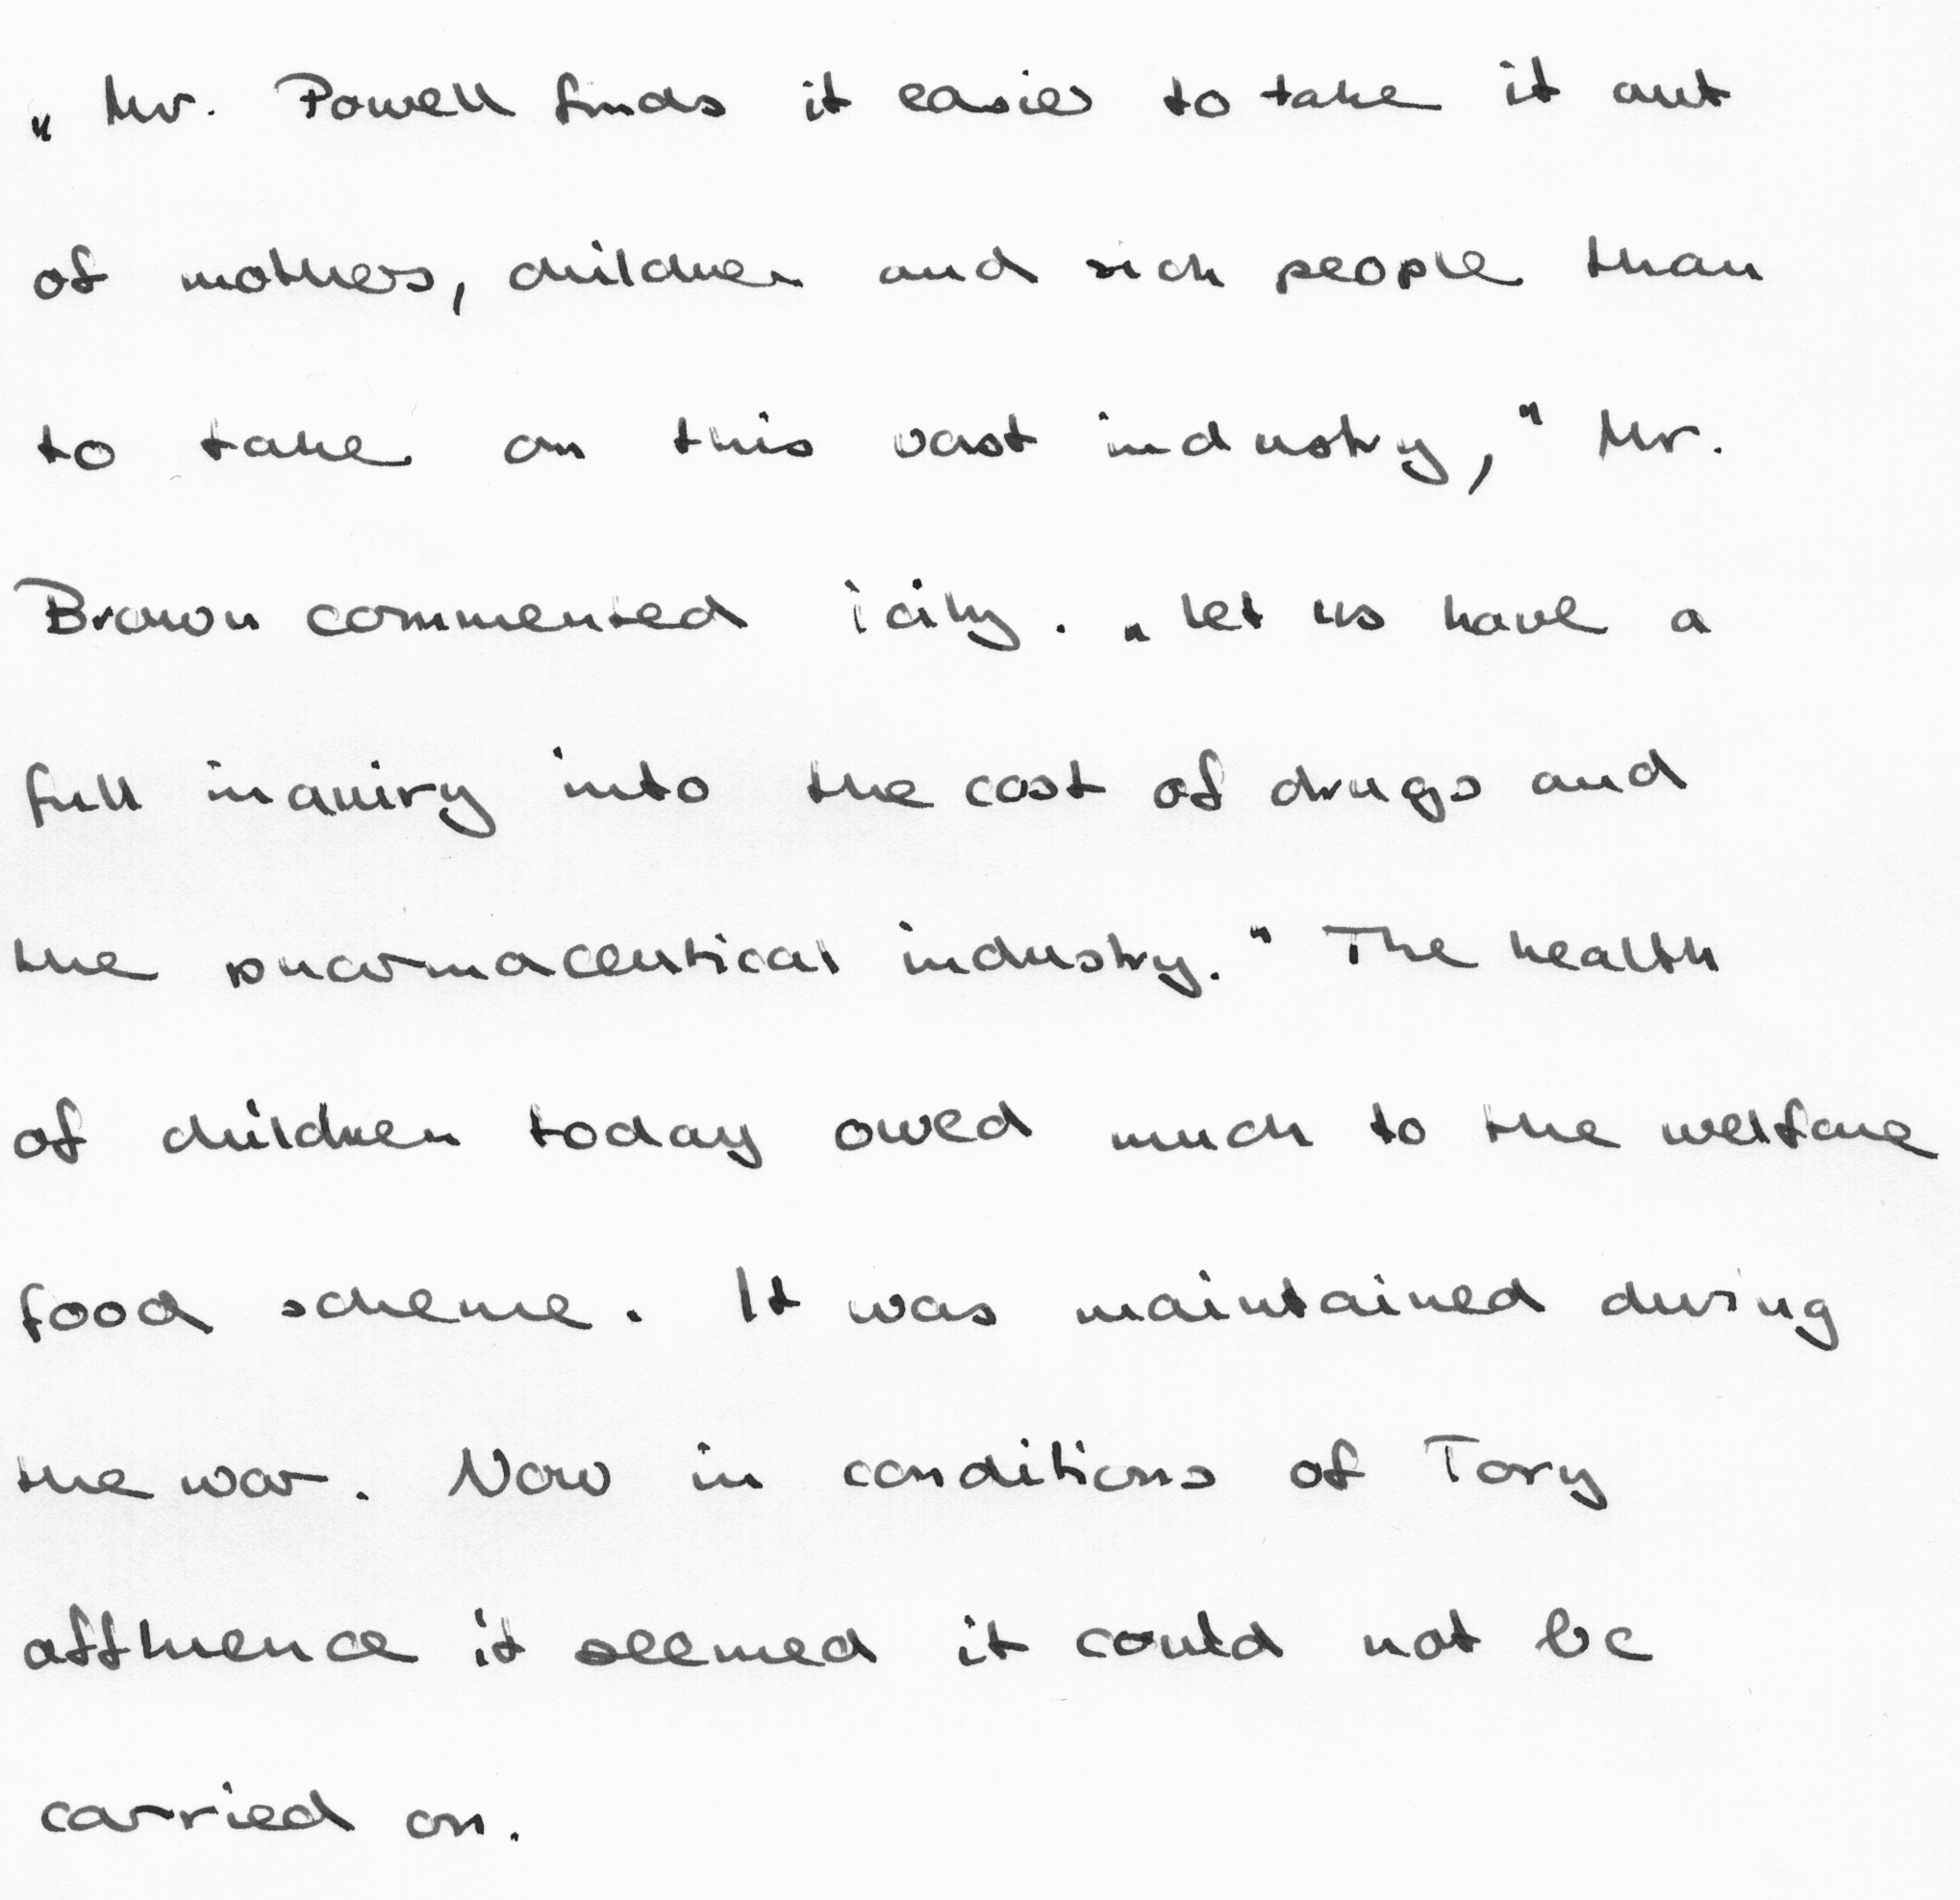 „ Mr. Powell finds it easier to take it out
of mothers, children and sick people than
to take on this vast industry, " Mr.
Brown commented icily. „ Let us have a
full inquiry into the cost of drugs and
the pharmaceutical industry. " The health
of children today owed much to the welfare
food scheme. It was maintained during
the war. Now in conditions of Tory
affluence it seemed it could not be
carried on.